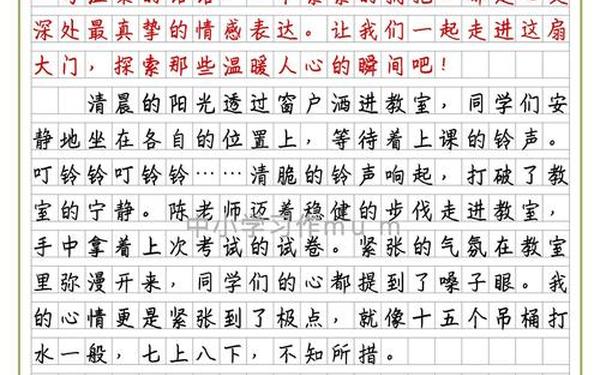 深处最真挚的情感表达。让我们一起走进这扇
大门，探索那些温暖人心的瞬间吧！
清晨的阳光透过窗户洒进教室，同学们安
静地坐在各自的位置上，等待着上课的铃声。
叮铃铃叮铃铃……清脆的铃声响起，打破了教
室的宁静。陈老师迈着稳健的步伐走进教室，
手中拿着上次考试的试卷。紧张的气氛在教室
里弥漫开来，同学们的心都提到了嗓子眼。我
的心情更是紧张到了极点，就像十五个吊桶打
水一般，七上八下，不知所措。
中小学习作mum